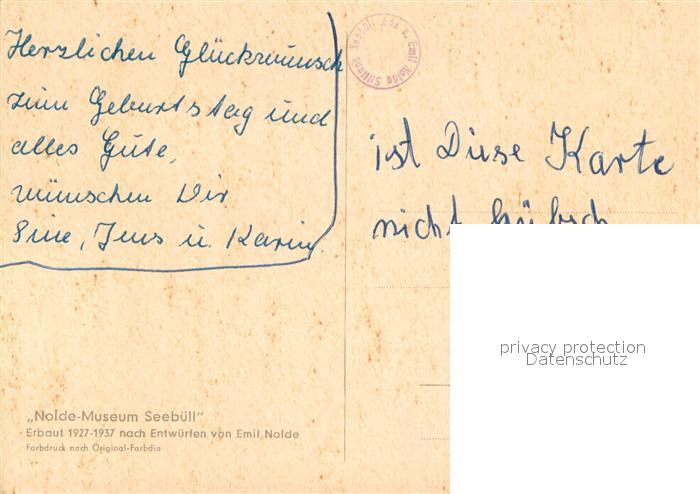 Herzlichen Glückwunsch
zum Geburtstag und
alles Gute,
wünschen Dir
Sine, Jens u. Karin
Stiftung Seebüll Ada u. Emil Nolde
ist Diese Karte
nicht hübsch
privacy protection
Datenschutz
„Nolde-Museum Seebüll"
Erbaut 1927-1937 nach Entwürfen von Emil Nolde
Farbdruck nach Original-Farbdia